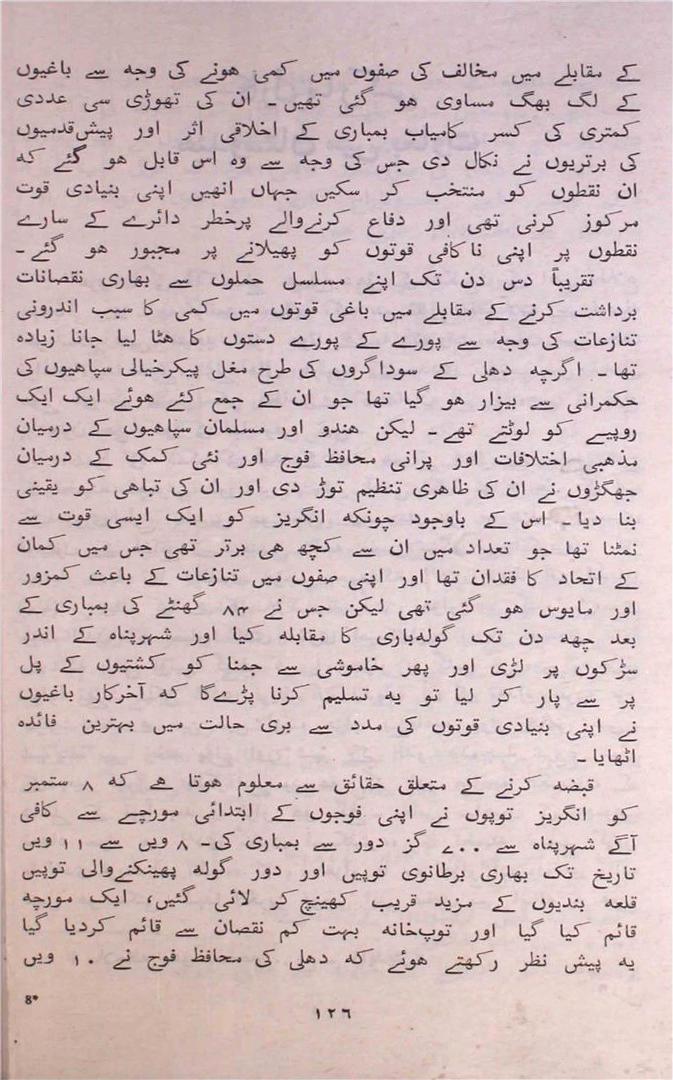 کے مقابلے میں مخالف کی صفوں میں کمی ھونے کی وجہ سے باغیوں
کے لگ بھگ مساوی ھو گئی تھیں۔ ان کی تھوڑی سی عددی
کمتری کی کسر کامیاب بمباری کے اخلاقی اثر اور پیش‌قدمیوں
کی برتریوں نے نکال دی جس کی وجہ سے وہ اس قابل ھو گئے کہ
ان نقطوں کو منتخب کر سکیں جہاں انھیں اپنی بنیادی قوت
مرکوز کرنی تھی اور دفاع کرنے‌والے پرخطر دائرے کے سارے
نقطوں پر اپنی ناکافی قوتوں کو پھیلانے پر مجبور ھو گئے۔
تقریباً دس دن تک اپنے مسلسل حملوں سے بھاری نقصانات
برداشت کرنے کے مقابلے میں باغی قوتوں میں کمی کا سبب اندرونی
تنازعات کی وجہ سے پورے کے پورے دستوں کا ھٹا لیا جانا زیادہ
تھا۔ اگرچہ دھلی کے سوداگروں کی طرح مغل پیکرخیالی سپاھیوں کی
حکمرانی سے بیزار ھو گیا تھا جو ان کے جمع کئے ھوئے ایک ایک
روپیے کو لوٹتے تھے۔ لیکن ھندو اور مسلمان سپاھیوں کے درمیان
مذھبی اختلافات اور پرانی محافظ فوج اور نئی کمک کے درمیان
جھگڑوں نے ان کی ظاھری تنظیم توڑ دی اور ان کی تباھی کو یقینی
بنا دیا۔ اس کے باوجود چونکہ انگریز کو ایک ایسی قوت سے
نمٹنا تھا جو تعداد میں ان سے کچھ ھی برتر تھی جس میں کمان
کے اتحاد کا فقدان تھا اور اپنی صفوں میں تنازعات کے باعث کمزور
اور مایوس ھو گئی تھی لیکن جس نے ۸۴ گھنٹے کی بمباری کے
بعد چھہ دن تک گولہ‌باری کا مقابلہ کیا اور شہرپناہ کے اندر
سڑکوں پر لڑی اور پھر خاموشی سے جمنا کو کشتیوں کے پل
پر سے پار کر لیا تو یہ تسلیم کرنا پڑے‌گا کہ آخرکار باغیوں
نے اپنی بنیادی قوتوں کی مدد سے بری حالت میں بہترین فائدہ
اٹھایا۔
قبضہ کرنے کے متعلق حقائق سے معلوم ھوتا ھے کہ ۸ ستمبر
کو انگریز توپوں نے اپنی فوجوں کے ابتدائی مورچے سے کافی
آگے شہرپناہ سے ۷۰۰ گز دور سے بمباری کی۔ ۸ ویں سے ۱۱ ویں
تاریخ تک بھاری برطانوی توپیں اور دور گولہ پھینکنے‌والی توپیں
قلعہ بندیوں کے مزید قریب کھینچ کر لائی گئیں، ایک مورچہ
قائم کیا گیا اور توپ‌خانہ بہت کم نقصان سے قائم کردیا گیا
یہ پیش نظر رکھتے ھوئے کہ دھلی کی محافظ فوج نے ۱۰ ویں
8*
۱۲۶